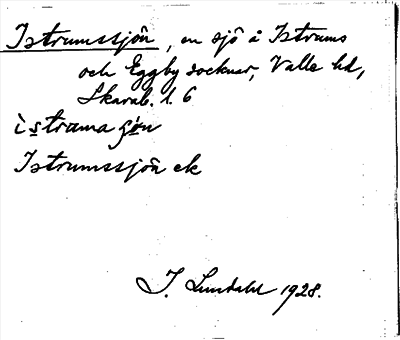 Istrumssjön, en sjö å Istrums
och Eggby socknar, Valle hd,
Skarab. l. 6
ìstrama ʃön
Istrumssjön ek
I. Lundahl 1928.